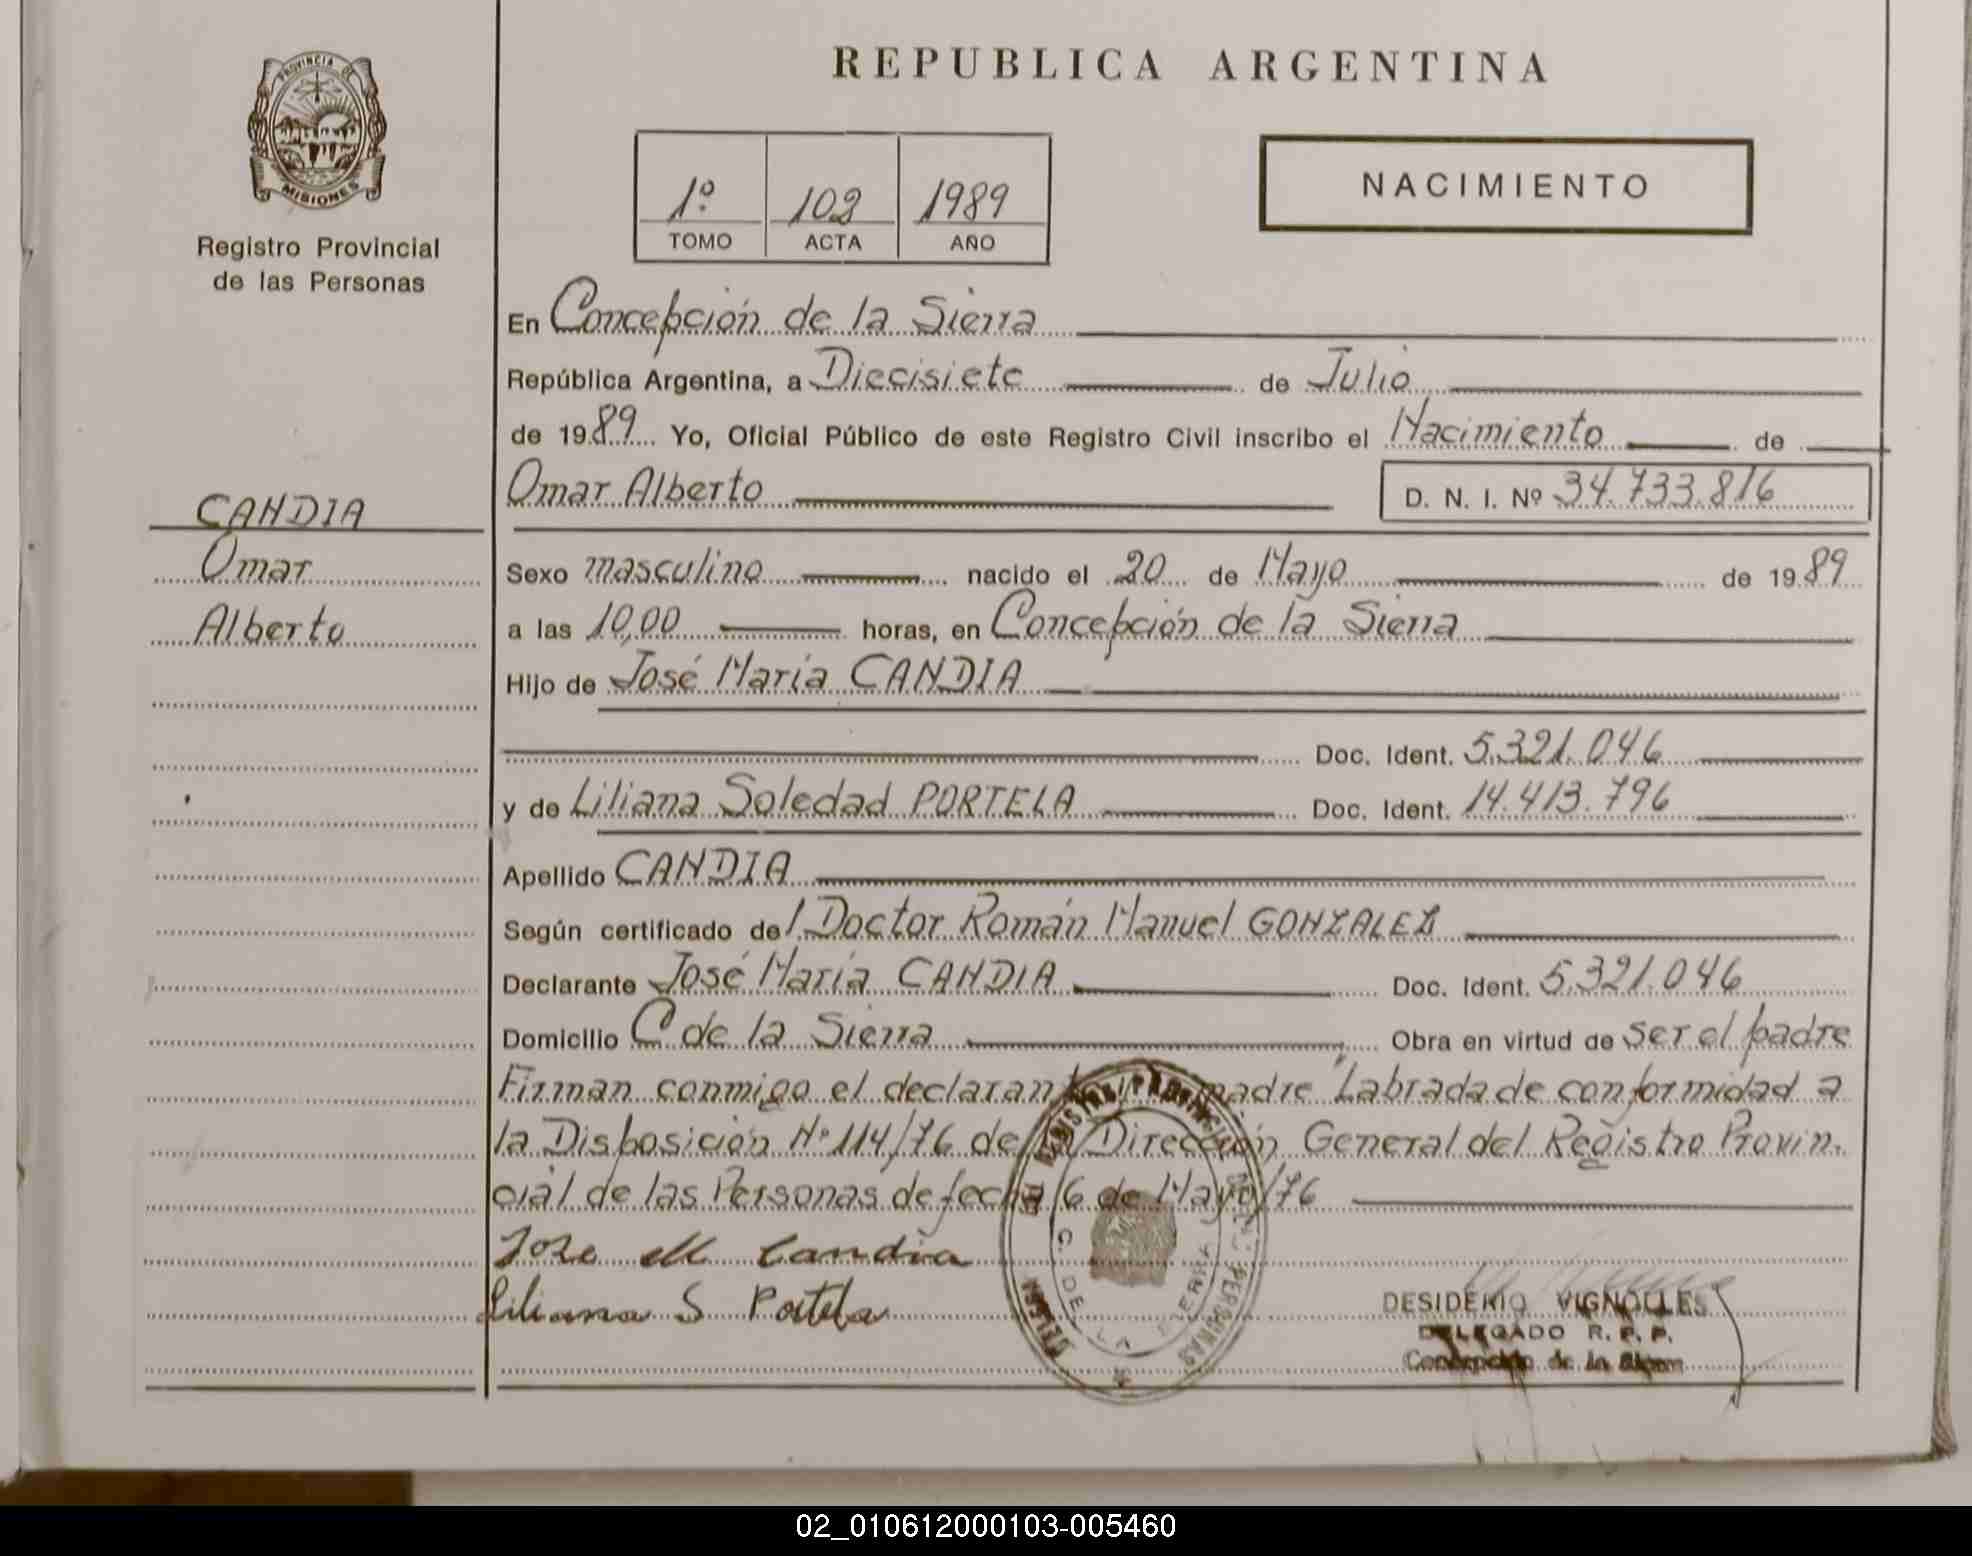 PROVINCIA DE
MISIONES
Registro Provincial
de las Personas
CANDIA
Omar
Alberto
REPUBLICA ARGENTINA
1º 102 1989
TOMO ACTA AÑO
NACIMIENTO
En Concepción de la Sierra
República Argentina, a Diecisiete de Julio
de 1989 Yo, Oficial Público de este Registro Civil inscribo el Nacimiento de
Omar Alberto D. N. I. Nº 34.733.816
Sexo masculino nacido el 20 de Mayo de 1989
a las 10,00 horas, en Concepción de la Sierra
Hijo de José María CANDIA
Doc. Ident. 5.321.046
y de Liliana Soledad PORTELA Doc. Ident. 14.413.796
Apellido CANDIA
Según certificado del Doctor Román Manuel GONZALEZ
Declarante José María CANDIA Doc. Ident. 5.321.046
Domicilio C. de la Sierra Obra en virtud de ser el padre
Firman conmigo el declarante madre "Labrada de conformidad a
la Disposición Nº 114/76 de la Dirección General del Registro Provin-
cial de las Personas de fecha 6 de Mayo/76
Jose M Candia
Liliana S Portela
C. DE LA SIERRA
DESIDERIO VIGNOLLES
DELEGADO R. P. P.
Concepción de la Sierra
02_010612000103-005460